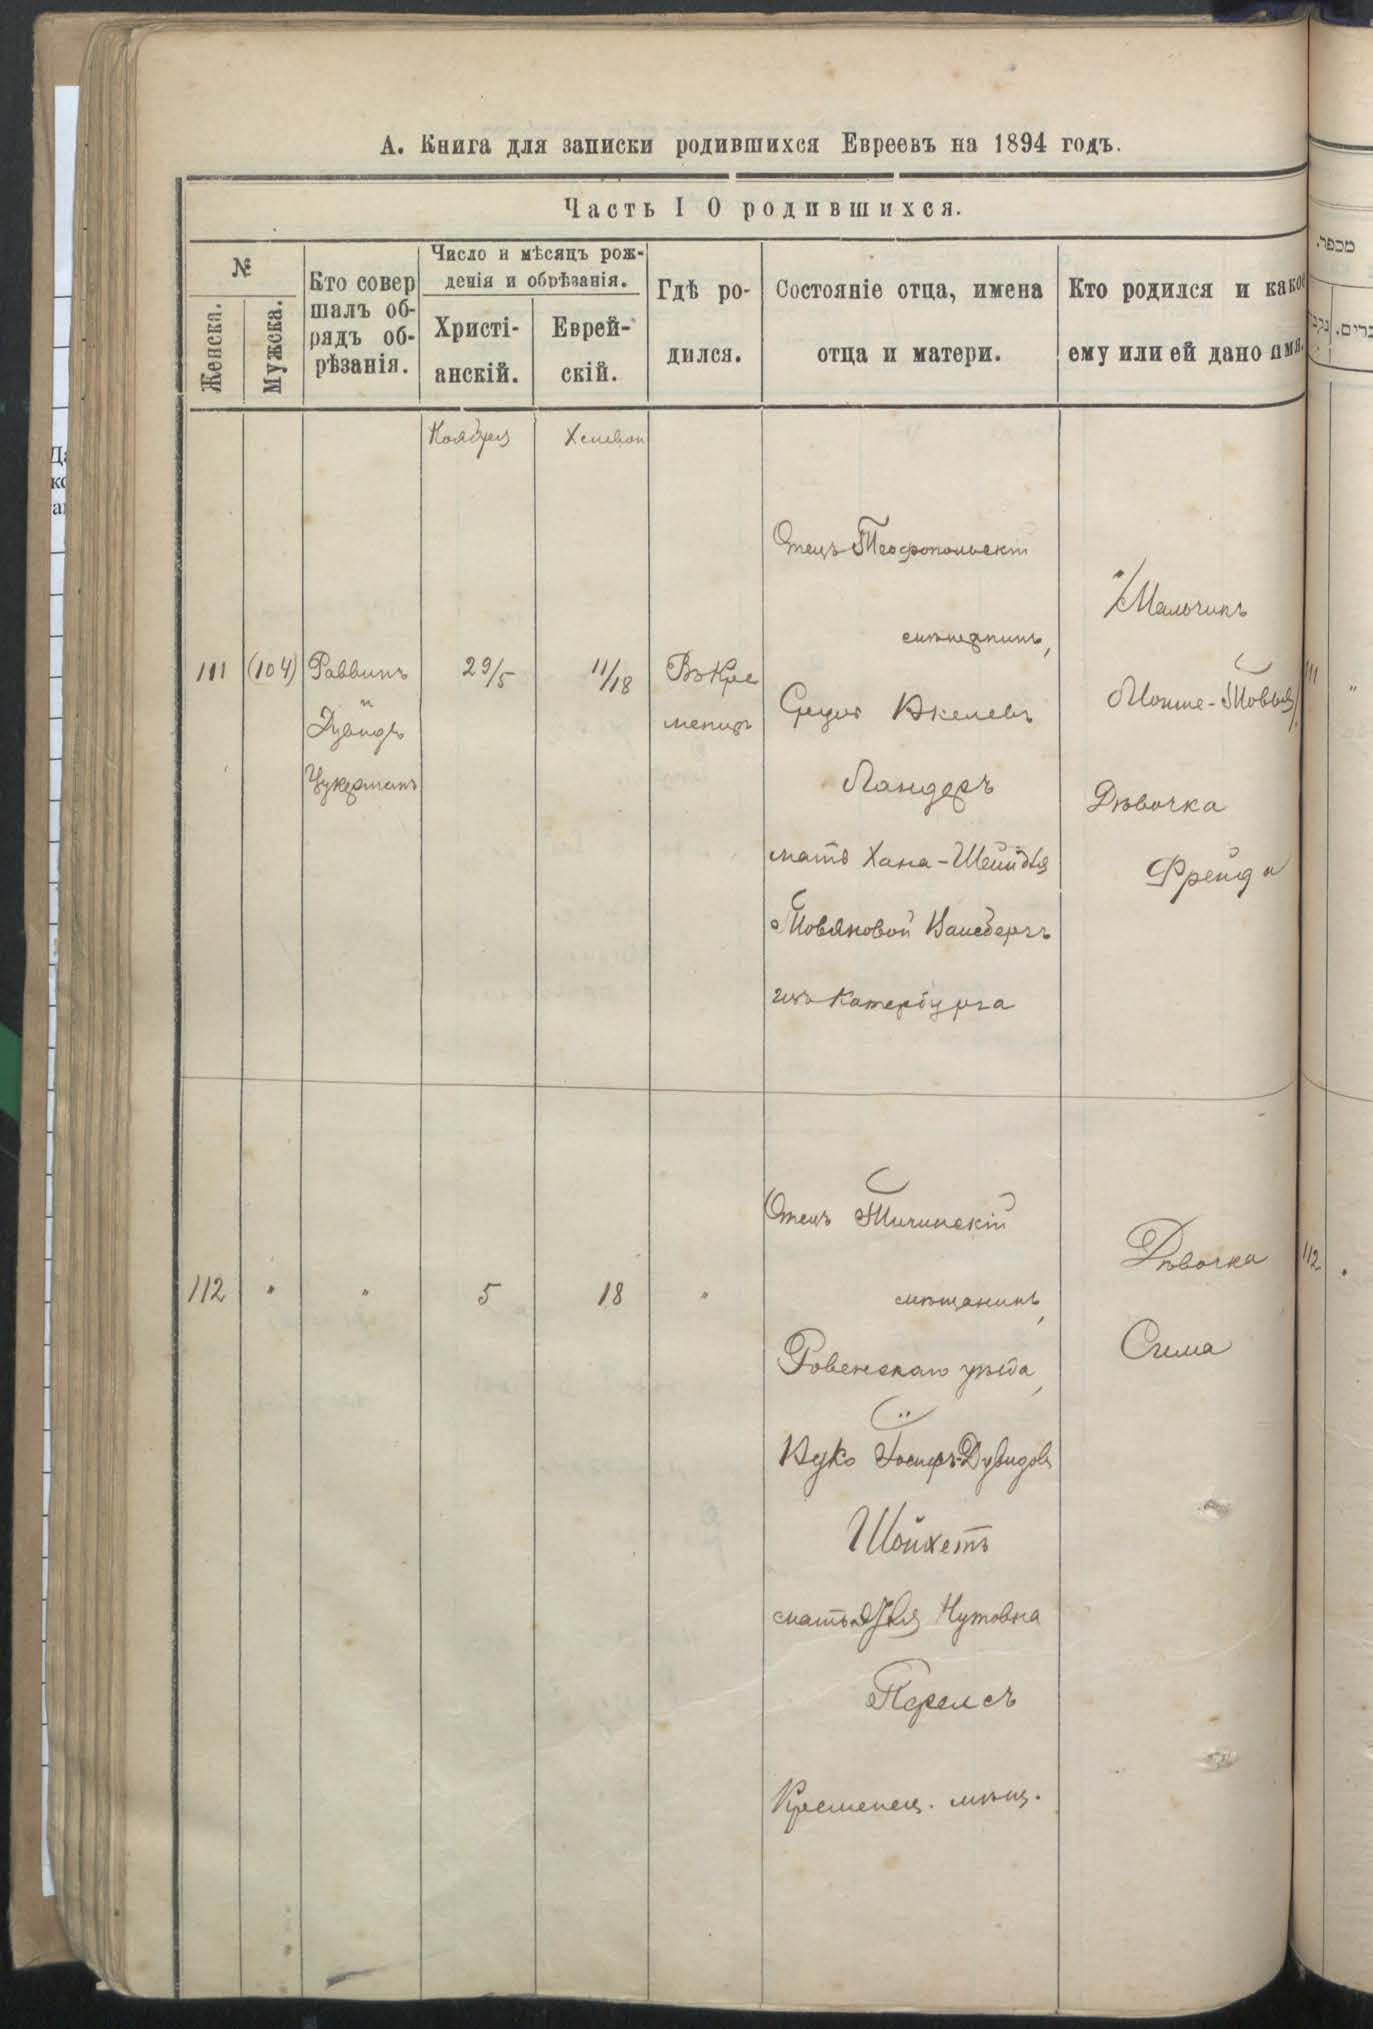 А. Книга для записки родившихся Евреевъ на 1894 годъ.
Часть I О родившихся.
№
Женска.
Мужска.
Кто совер
шалъ об-
рядъ об-
рѣзанія.
Число и мѣсяцъ рож-
денія и обрѣзанія.
Христі-
анскій.
Еврей-
скій.
Гдѣ ро-
дился.
Состояніе отца, имена
отца и матери.
Кто родился и какое
ему или ей дано имя.
Ноября
Хешван
111
(104)
Раввинъ
и
Дувидъ
Цукерманъ
29/5
11/18
Въ Кре
менцѣ
Отецъ Теофопольскій
мѣщанинъ,
Ландеръ
мать Хана-Шейндля
Товяновой Вансбергъ
изъ Катербурга
Мальчикъ
Мошие-Товья
Дѣвочка
Фрейда
112
"
"
5
18
"
Отецъ Тучинскій
мѣщанинъ,
Ровенскаго уѣзда,
Іосифъ-Дувидовъ
Шойхетъ
мать Нутовна
Перелсъ
Кременец. мѣщ.
Дѣвочка
Сима
מספר.
נקבות
זכרים.
111
"
112
"